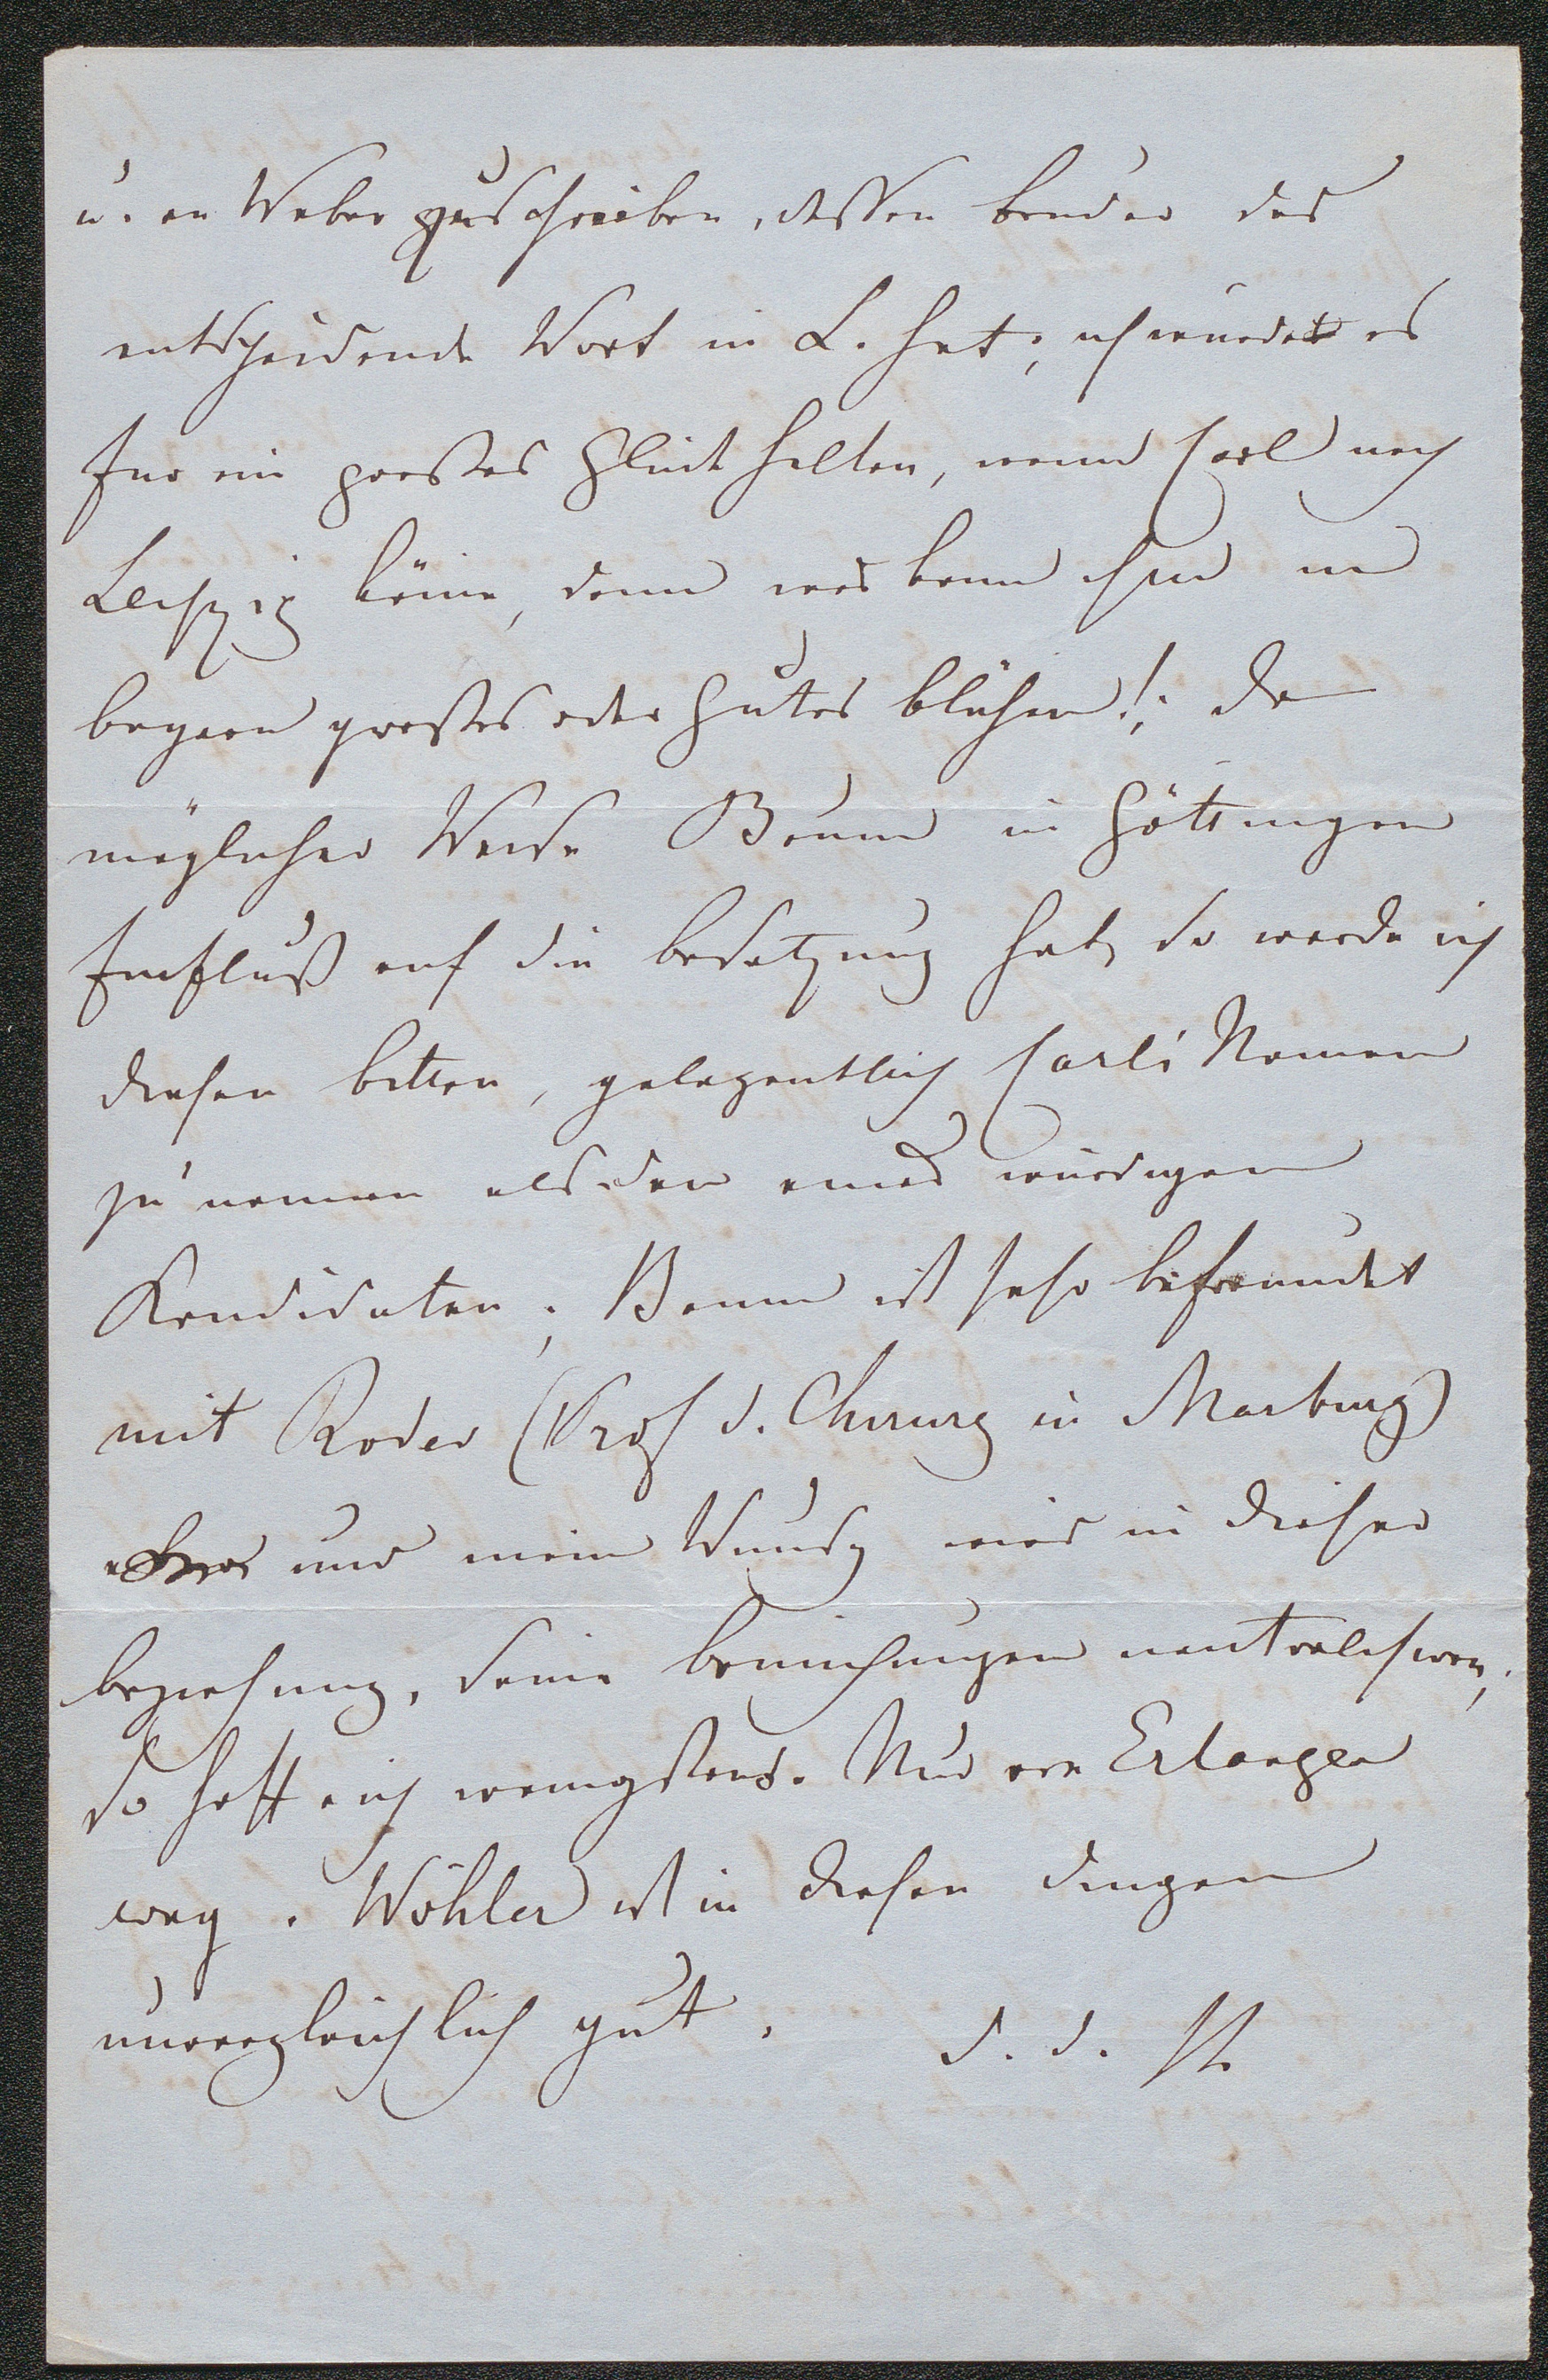 u. an Weber zu schreiben, dessen bruder das
entscheidende Wort in L. hat; ich würde es
fur ein grosses Glück halten, wenn Carl nach
Leipzig käme, denn was kann ihm in
bayern grosses oder Gutes blühen!; da
möglicher Weise Baum in Göttingen
Einfluß auf die besetzung hat, so werde ich
diesen bitten, gelegentlich Carls Namen
zu nennen als den eines würdigen
Kandidaten; Baum ist sehr befreundet
mit Roser (Prof d. Chirurg in Marburg)
und mein Wunsch wird in dieser
beziehung, seine bemühungen neutralisiren,
so hoffe ich wenigstens. Nur von Erlangen
weg. Wöhler ist in diesen dingen
unvergleichlich gut.